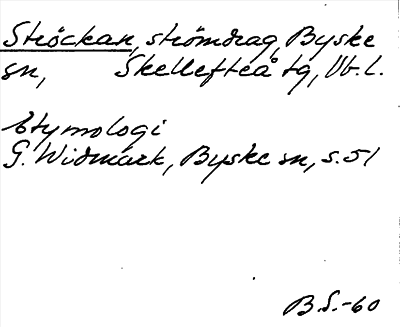 Ströckan, strömdrag, Byske
sn, Skellefteå tg, Vb.l.
Etymologi
G. Widmark, Byske sn, s.51
B.S.-60